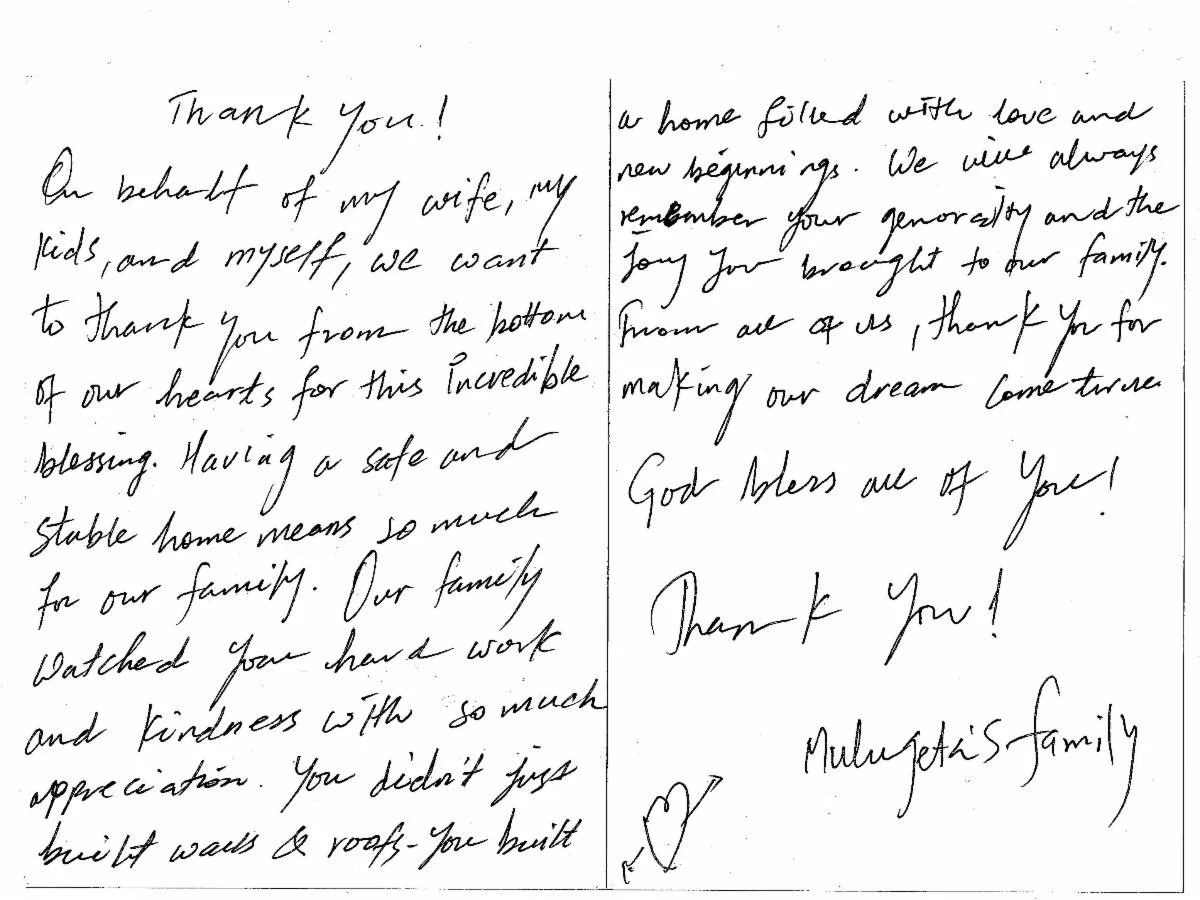 Thank you!
On behalf of my wife, my
kids, and myself, we want
to thank you from the bottom
of our hearts for this incredible
blessing. Having a safe and
stable home means so much
for our family. Our family
watched your hard work
and kindness with so much
appreciation. You didn't just
built walls & roofs - you built
a home filled with love and
new beginnings. We will always
remember your generosity and the
joy you brought to our family.
From all of us, thank you for
making our dream come true
God bless all of you!
Thank you!
Mulugeta's family